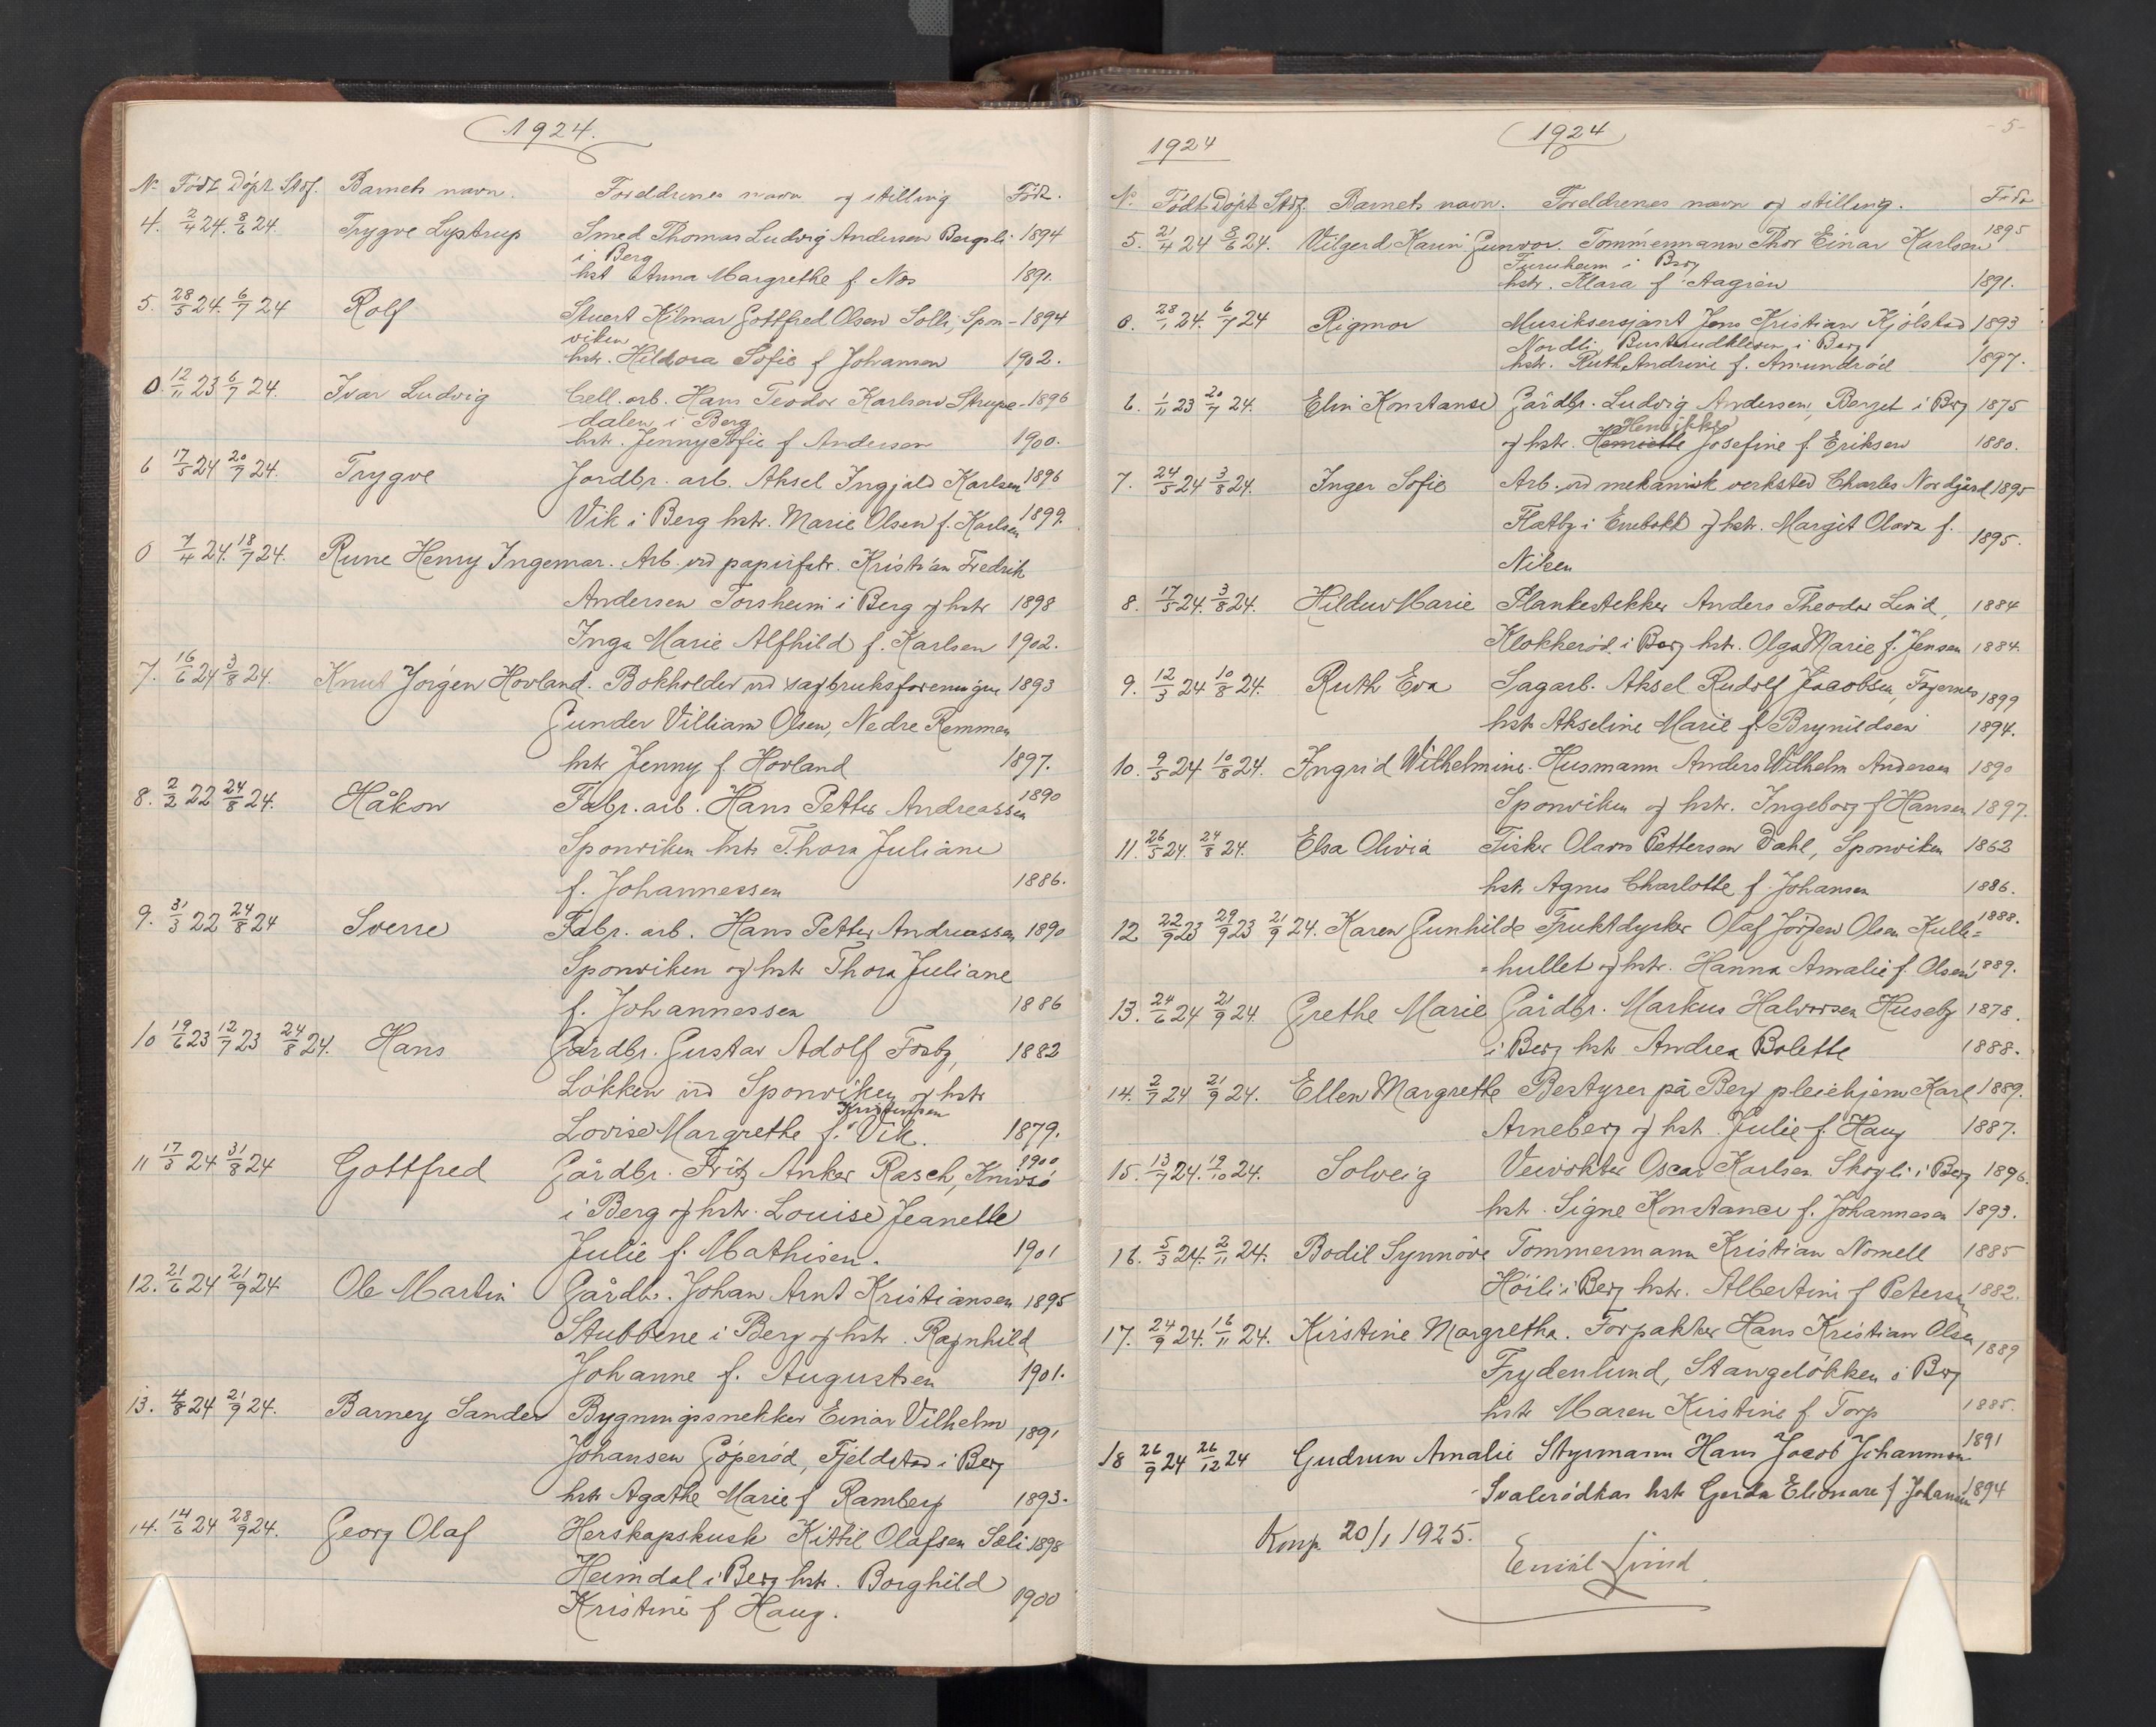 1924.
Nr. Födt Döpt Stdf. Barnets navn. Foreldrenes navn og stilling Födt.
4. 2/4 24. 8/6 24. Trygve Lystrup Smed Thomas Ludvig Andersen Bergsli 1894
i Berg
hst Anna Margrethe f. Nos 1891.
5. 28/5 24. 6/7 24 Rolf Stuert Hilmar Gottfred Olsen Solli, Spon- 1894
viken
hstr. Hildora Sofie f Johansen 1902.
0. 12/11 23 6/7 24. Ivar Ludvig Cell. arb. Hans Teodor Karlsen Strupe- 1896
dalen i Berg
hstr. Jenny Sofie f Andersen 1900.
6 17/5 24 20/7 24. Trygve Jordbr. arb. Aksel Ingjald Karlsen 1896
Vik i Berg hstr. Marie Olsen f. Karlsen 1899.
0 7/4 24. 18/7 24. Rune Henry Ingemar. Arb. ved papirfabr. Kristian Fredrik
Andersen Torsheim i Berg og hstr 1898
Inga Marie Alfhild f. Karlsen 1902.
7. 16/6 24 3/8 24. Knut Jörgen Hovland. Bokholder ved sagbruksforeningen 1893
Gunder Villiam Olsen, Nedre Remmen
hstr Jenny f Hovland 1897.
8. 2/2 22 24/8 24. Håkon Fabr. arb. Hans Petter Andreassen 1890
Sponviken hstr Thora Juliane
f. Johannessen 1886.
9. 31/3 22 24/8 24 Sverre Fabr. arb. Hans Petter Andreassen 1890
Sponviken og hstr Thora Juliane
f. Johannessen 1886
10 19/6 23 12/7 23 24/8 24. Hans Gårdbr. Gustav Adolf Fosby, 1882
Lökken ved Sponviken og hstr
Kristensen
Lovise Margrethe f. Vik. 1879.
11 17/5 24 31/8 24 Gottfred Gårdbr. Fritz Anker Rasch, Knivsö 1900
i Berg og hstr. Louise Jeanette
Julie f. Mathisen. 1901
12. 21/6 24 21/9 24. Ole Martin Gårdbr. Johan Arnt Kristiansen 1895
Stubbene i Berg og hstr. Ragnhild
Johanne f. Augustsen 1901.
13. 4/8 24 21/9 24. Barney Sander Bygningssnekker Einar Vilhelm 1891
Johansen Göperöd, Fjeldstad i Berg
hstr Agathe Marie f Ramberg 1893.
14. 14/6 24 28/9 24. Georg Olaf Herskapskusk Kittil Olafsen Sæli 1898
Heimdal i Berg hstr. Borghild
Kristine f Haug. 1900
- 5 -
1924
1924
Nr. Födt Döpt Stdf. Barnets navn. Foreldrenes navn og stilling. Födt
5. 21/4 24 8/6 24. Vilgerd Karin Gunvor. Tömmermann Thor Einar Karlsen 1895
Furuheim i Berg
hstr. Klara f Aagren 1891.
0. 28/1 24. 6/7 24 Rigmor Musiksersjant Jens Kristian Kjölstad 1893
Nordli, Busterudkleven i Berg
hstr. Ruth Andrine f. Amundröd 1897.
6. 1/11 23 20/7 24. Elin Konstanse Gårdbr. Ludvig Andersen, Berget i Berg 1875
Henrikke
og hstr. Henriette Josefine f. Eriksen 1880.
7. 24/5 24 3/8 24. Inger Sofie Arb. ved mekanisk verksted Charles Nordgård 1895
Flatby i Enebakk og hstr. Margit Olava f. 1895.
Nilsen
8. 17/5 24. 3/8 24. Hildur Marie Plankestekker Anders Theodor Lind, 1884
Klokkeröd i Berg hstr. Olga Marie f. Jensen 1884.
9. 12/3 24 10/8 24. Ruth Eva Sagarb. Aksel Rudolf Jacobsen, Fagernes 1899
hstr Akseline Marie f. Brynildsen 1894.
10. 9/5 24. 10/8 24. Ingrid Wilhelmine. Husmann Anders Wilhelm Andersen 1890
Sponviken og hstr. Ingeborg f Hansen 1897.
11. 26/5 24. 24/8 24. Elsa Olivia Fisker Olavs Pettersen Dahl, Sponviken 1862
hstr Agnes Charlotte f. Johansen 1886.
12 22/9 23 29/9 23 21/9 24. Karen Gunhilde Fruktdyrker Olaf Jörgen Olsen Kulle= 1888.
=hullet og hstr. Hanna Amalie f. Olsen 1889.
13. 24/6 24 21/9 24. Grethe Marie Gårdbr. Markus Halvorsen Huseby 1878.
i Berg hstr Andrea Bolette 1888.
14. 2/7 24 21/9 24. Ellen Margrethe Bestyrer på Berg pleiehjem Karl 1889.
Arneberg og hstr. Julie f. Haug 1887.
15. 13/7 24. 19/10 24. Solveig Veivokter Oscar Karlsen Skogli i Berg 1896.
hstr. Signe Konstance f. Johannesen 1893.
16. 5/3 24. 2/11 24. Bodil Synnöve Tommermann Kristian Nomell 1885
Höili i Berg hstr. Albertine f Petersen 1882.
17. 24/9 24. 16/11 24. Kirstine Margrethe. Forpakter Hans Kristian Olsen 1889
Frydenlund, Stangelökken i Berg
hstr Maren Kirstine f. Torp 1885.
18 26/9 24 26/12 24 Gudrun Amalie Styrmann Hans Jacob Johannsen 1891
Svalerödkas hstr Gerda Elionare f Johansen 1894
Konf. 20/1 1925.
Emil Lind